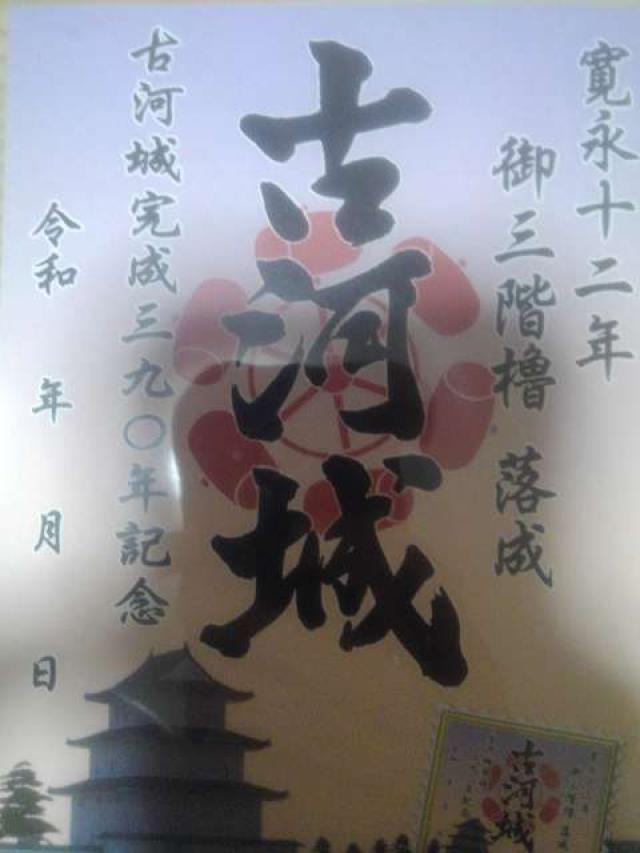 寛永十二年
御三階櫓 落成
古河城
古河城完成三九〇年記念
令和 年 月 日
古河城